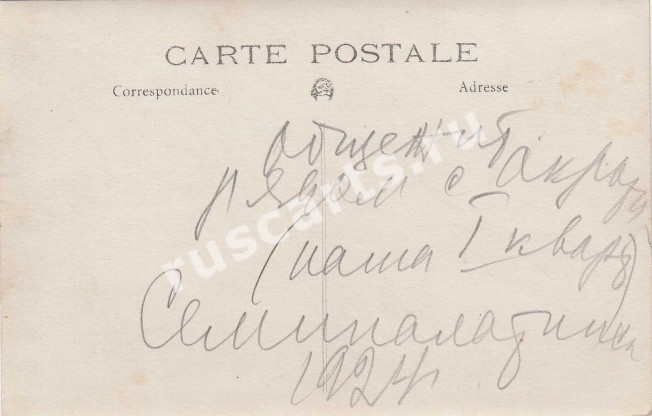 CARTE POSTALE
Correspondance
Adresse
общежит
рядом с Окроно
(наша I кварт)
Семипалатинск
1924.
ruscarts.ru